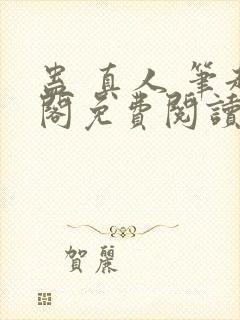 蠱真人筆趣
閣免費閱讀
賀麗